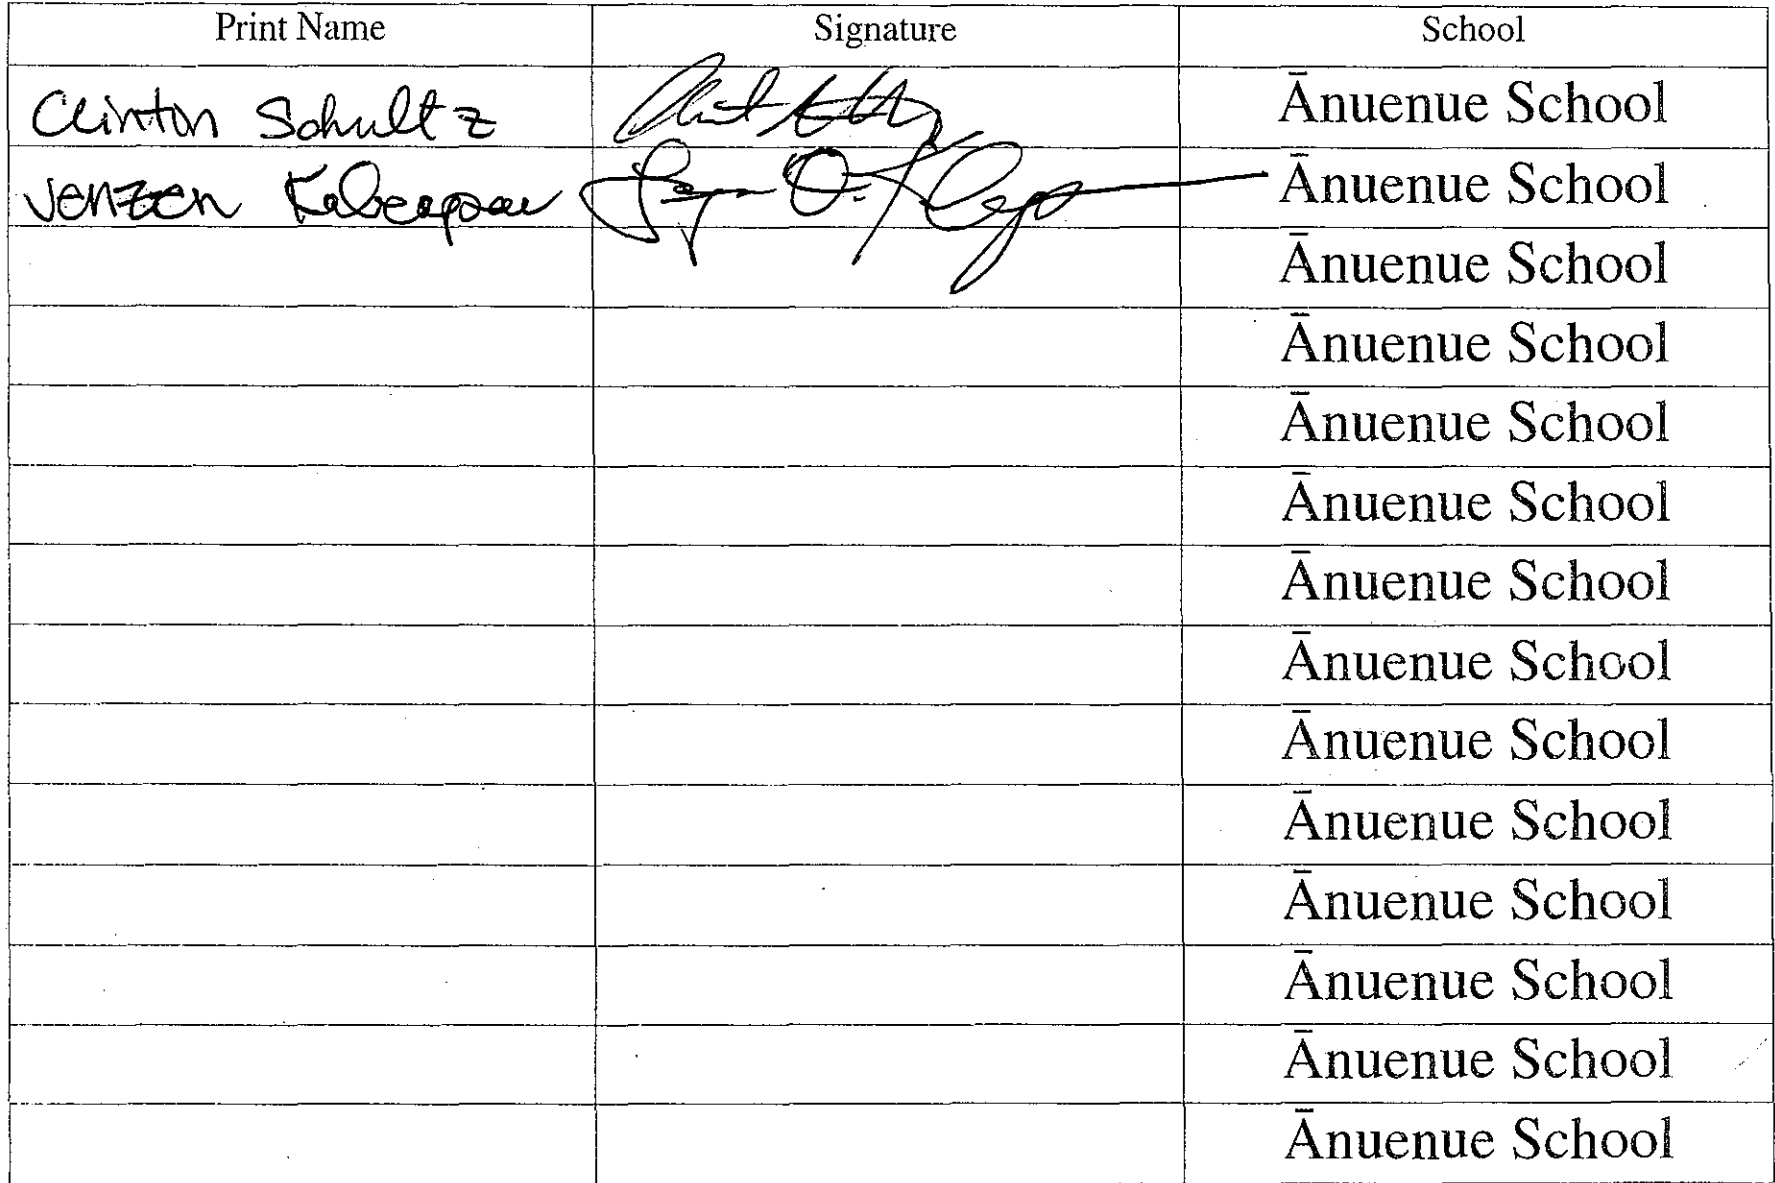 Print Name Signature School
Clinton Schultz Ānuenue School
Jenzen Ānuenue School
Ānuenue School
Ānuenue School
Ānuenue School
Ānuenue School
Ānuenue School
Ānuenue School
Ānuenue School
Ānuenue School
Ānuenue School
Ānuenue School
Ānuenue School
Ānuenue School